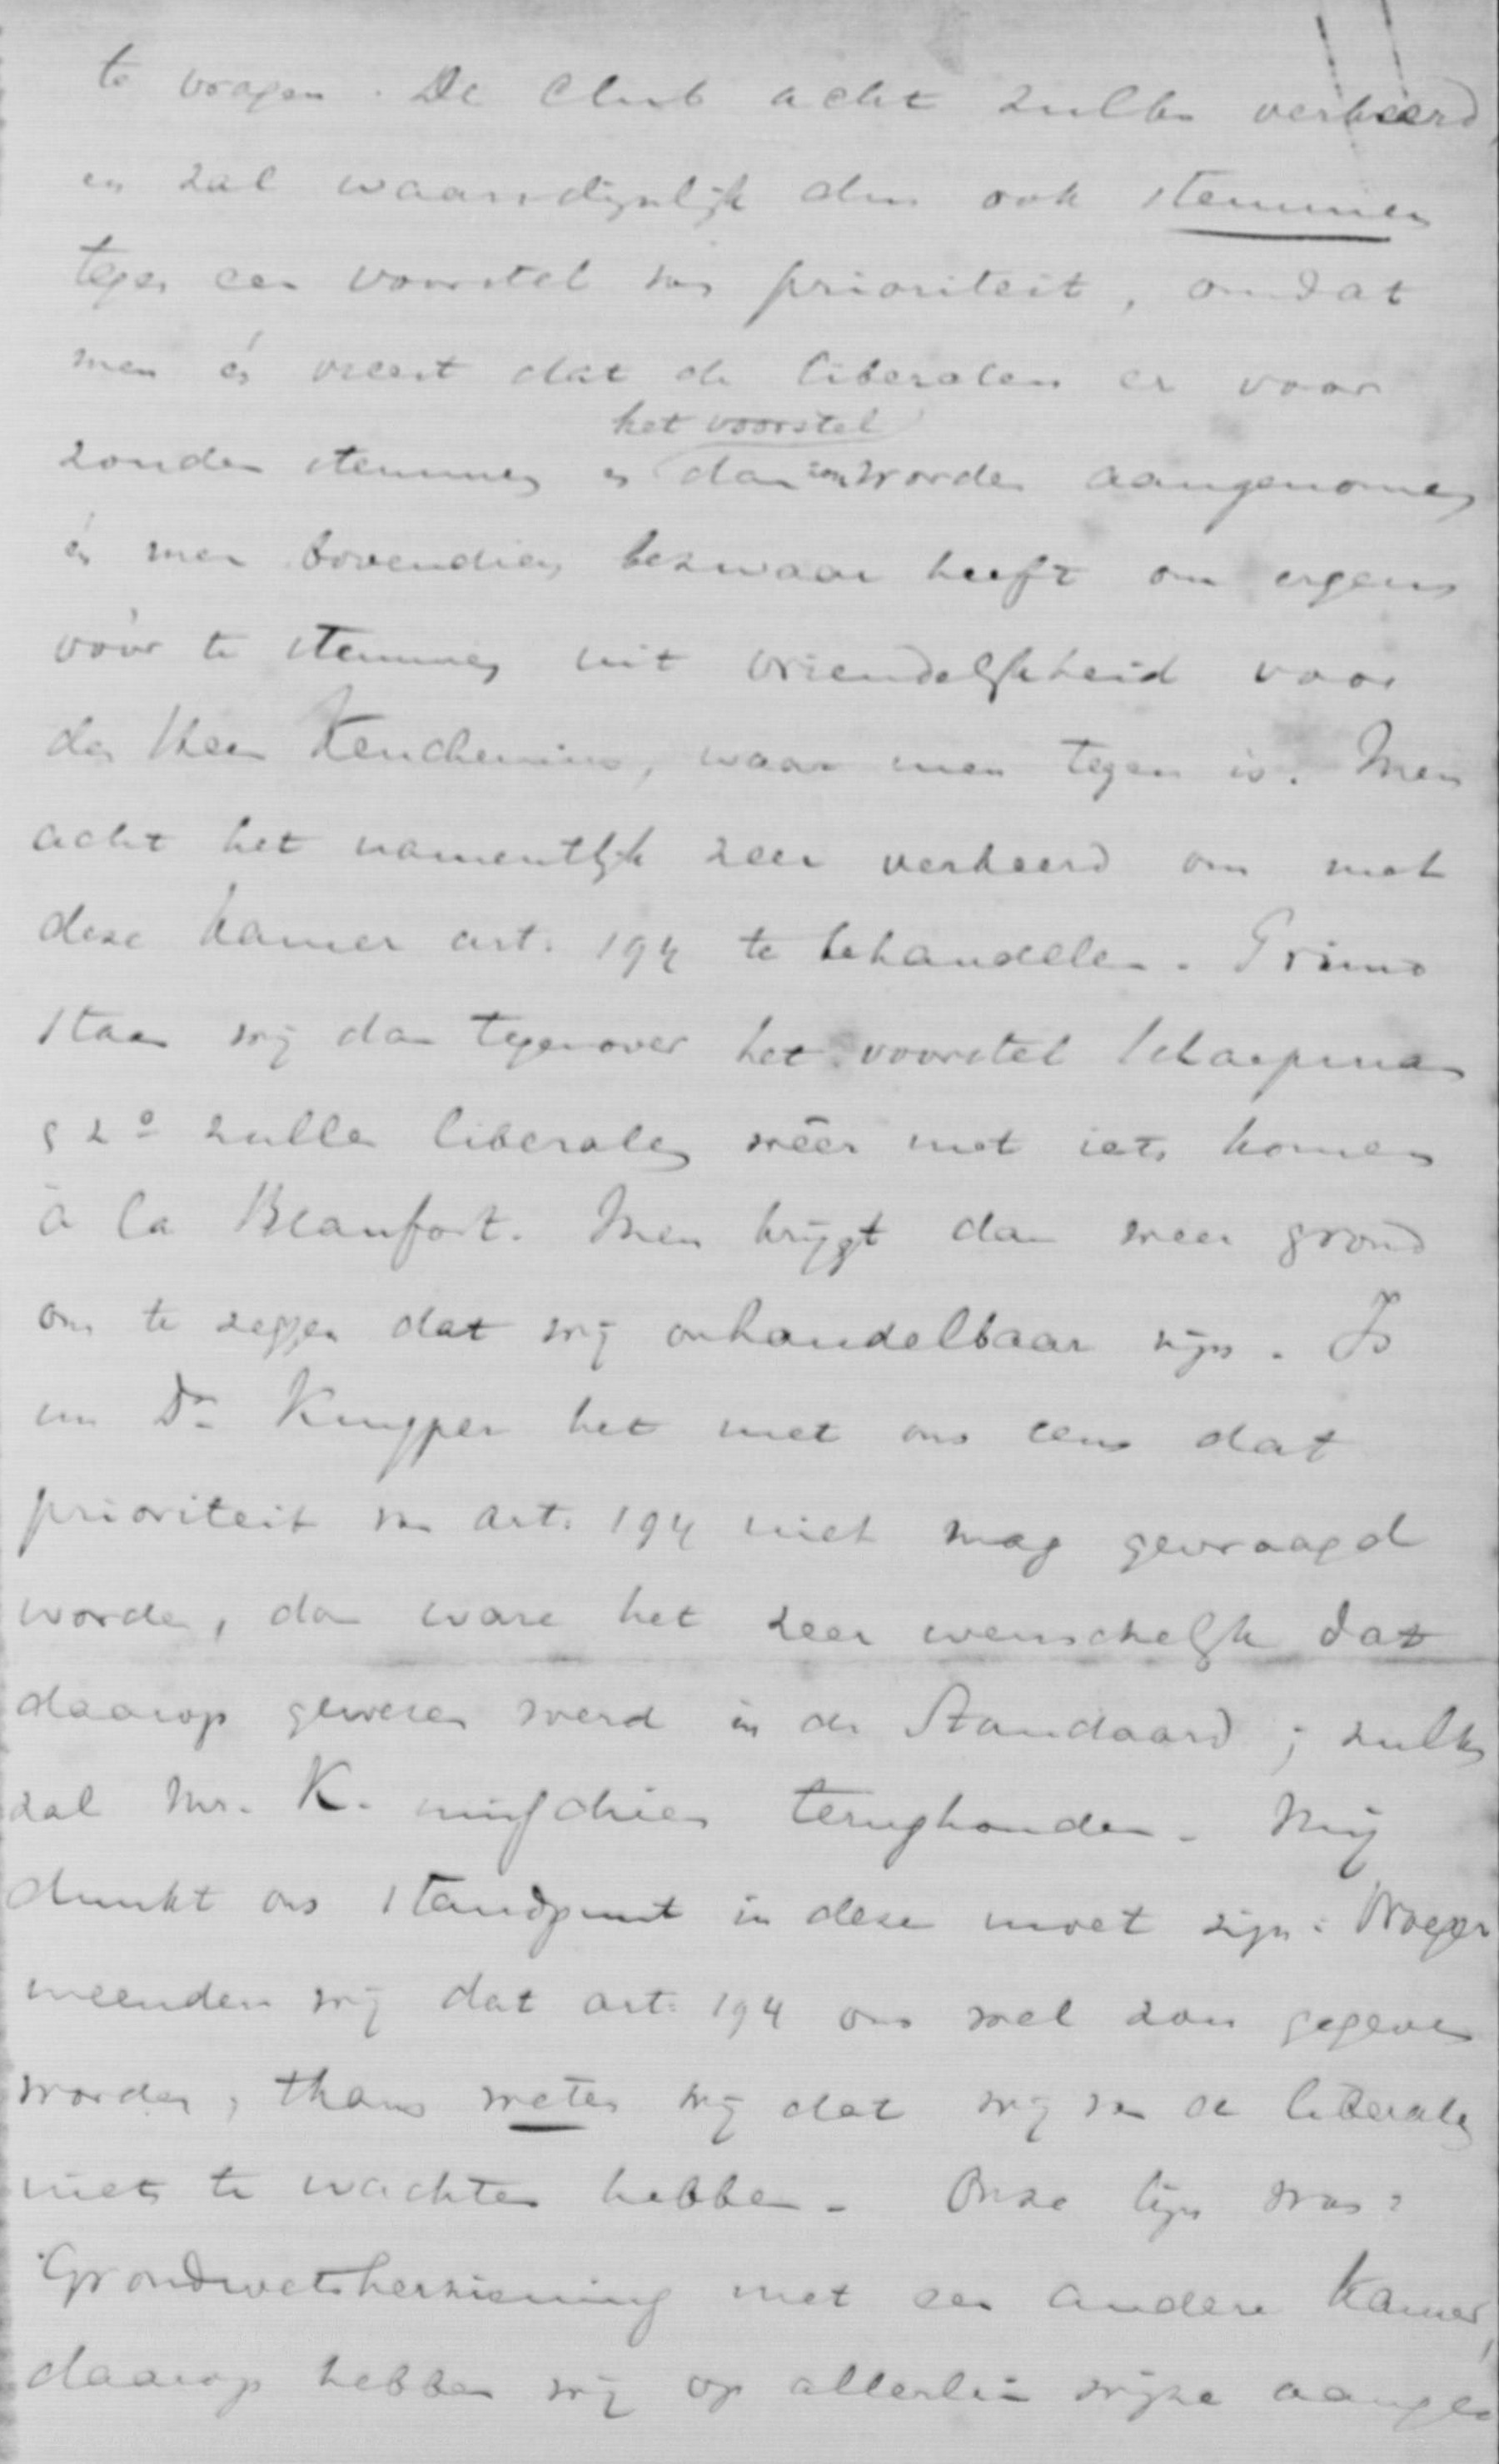 te vragen. De Club acht zulks verkeerd,
en zal waarschijnlijk dus ook stemmen
tegen een voorstel van prioriteit, omdat
men én vreest dat de liberalen er voor
het voorstel
zouden stemmen en dan zou worden aangenomen
én men bovendien bezwaar heeft om ergens
vóór te stemmen uit vriendelijkheid voor
den Heer Keuchenius, waar men tegen is. Men
acht het namentlijk zeer verkeerd om met
deze kamer art. 194 te behandelen. Primo
staan wij dan tegenover het voorstel Schaepman
& 2º zullen liberalen wéér met iets komen
à la Beaufort. Men krijgt dan weer grond
om te zeggen dat wij onhandelbaar zijn. Is
nu Dr Kuyper het met ons eens dat
prioriteit van art. 194 niet mag gevraagd
worden, dan ware het zeer wenschelijk dat
daarop gewezen werd in de Standaard; zulks
zal Mr. K. misschien terughouden. Mij
dunkt ons standpunt in deze moet zijn: Vroeger
meenden wij dat art. 194 ons wel zou gegeven
worden, thans weten wij dat wij van de liberalen
niets te wachten hebben. Onze lijn was:
Grondwetsherziening met een andere Kamer,
daarop hebben wij op allerlei wijze aange